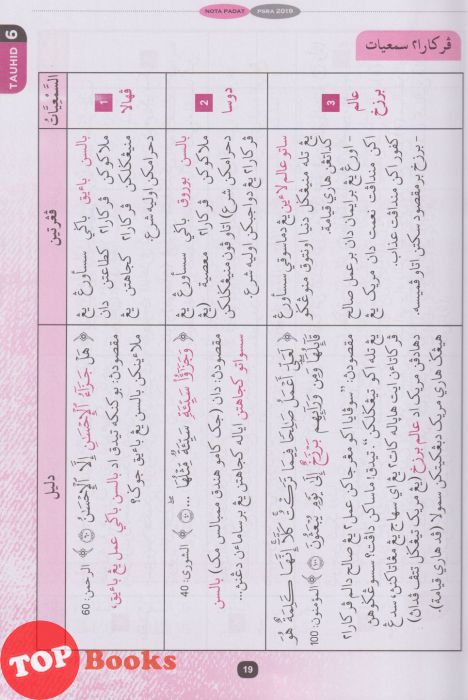 NOTA PADAT
PSRA 2019
TAUHID 6
ڤرکارا٢ سمعيات
السَّمْعِيَات
ڤڠرتين
دليل
1
ڤهالا
بالسن باءيق باݢي سسأورڠ يڠ
ملاکوکن ڤرکارا٢ کطاعتن دان
منيڠݢلکن ڤرکارا٢ کجاهتن يڠ
دحرامکن اوليه شرع.
﴿ هَلْ جَزَآءُ ٱلْإِحْسَٰنِ إِلَّا ٱلْإِحْسَٰنُ ﴾ الرحمن: 60
مقصودن: بوکنکه تيدق اد بالسن باݢي عمل يڠ باءيق،
ملاءينکن بالسن يڠ باءيق جوݢ؟
2
دوسا
بالسن بوروق باݢي سسأورڠ يڠ
ملاکوکن ڤرکارا٢ معصية (يڠ
دحرامکن شرع) اتاو ڤون منيڠݢلکن
ڤرکارا٢ يڠ دواجبکن اوليه شرع.
﴿ وَجَزَٰٓؤُا۟ سَيِّئَةٍ سَيِّئَةٌ مِّثْلُهَا ... ﴾ الشورى: 40
مقصودن: دان (جک کامو هندق ممبالس مک) بالسن
سسواتو کجاهتن اياله کجاهتن يڠ برسامأن دڠنن...
3
عالم برزخ
ساتو عالم لاءين يڠ دماسوقي سسأورڠ
يڠ تله منيڠݢل دنيا اونتوق منوڠݢو
کداتڠن هاري قيامة.
- اورڠ يڠ برايمان دان برعمل صالح
اکن منداڤت نعمت دان مريک يڠ
کفور اکن منداڤت عذاب.
- برزخ برمقصود سکتن اتاو ڤميسه.
﴿ لَعَلِّىٓ أَعْمَلُ صَٰلِحًا فِيمَا تَرَكْتُ كَلَّآ إِنَّهَا كَلِمَةٌ هُوَ
قَآئِلُهَا وَمِن وَرَآئِهِم بَرْزَخٌ إِلَىٰ يَوْمِ يُبْعَثُونَ ﴾ المؤمنون: 100
مقصودن: "سوڤايا اکو مڠرجاکن عمل٢ يڠ صالح دالم ڤرکارا٢
يڠ تله اکو تيڠݢلکن". تيدق! ماساکن داڤت؟ سسوڠݢوهن
ڤرکاتاءن ايت هاڽاله کات٢ يڠ اي سهاج يڠ مڠاتاکنن، سدڠ
دهادڤن مريک اد عالم برزخ (يڠ مريک تيڠݢل تتڤ ڤدان)
هيڠݢ هاري مريک دبڠکيتکن سمولا (ڤد هاري قيامة).
19
TOP Books